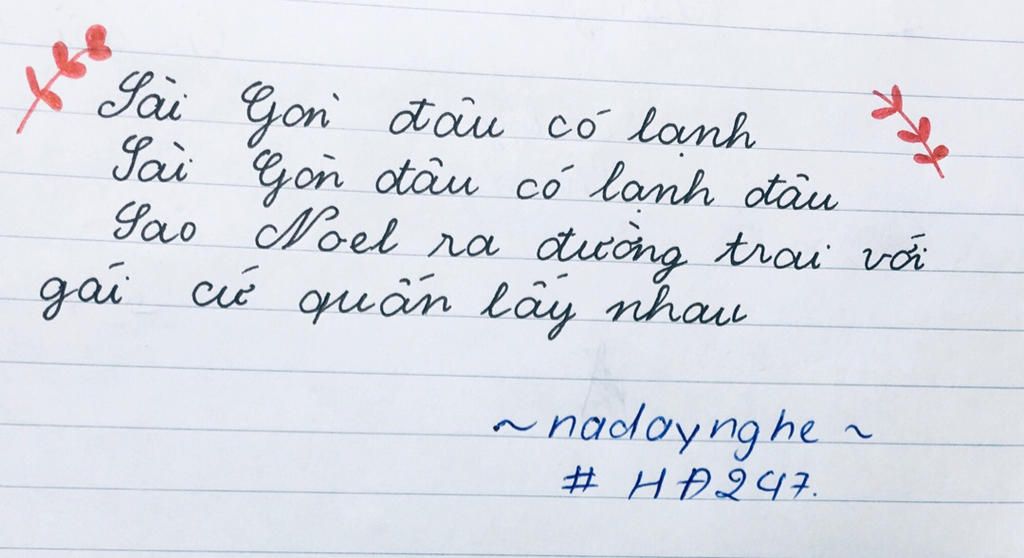 Sài Gòn đâu có lạnh
Sài Gòn đâu có lạnh đâu
Sao Noel ra đường trai với
gái cứ quấn lấy nhau
~ nadaynghe ~
# HĐ247.